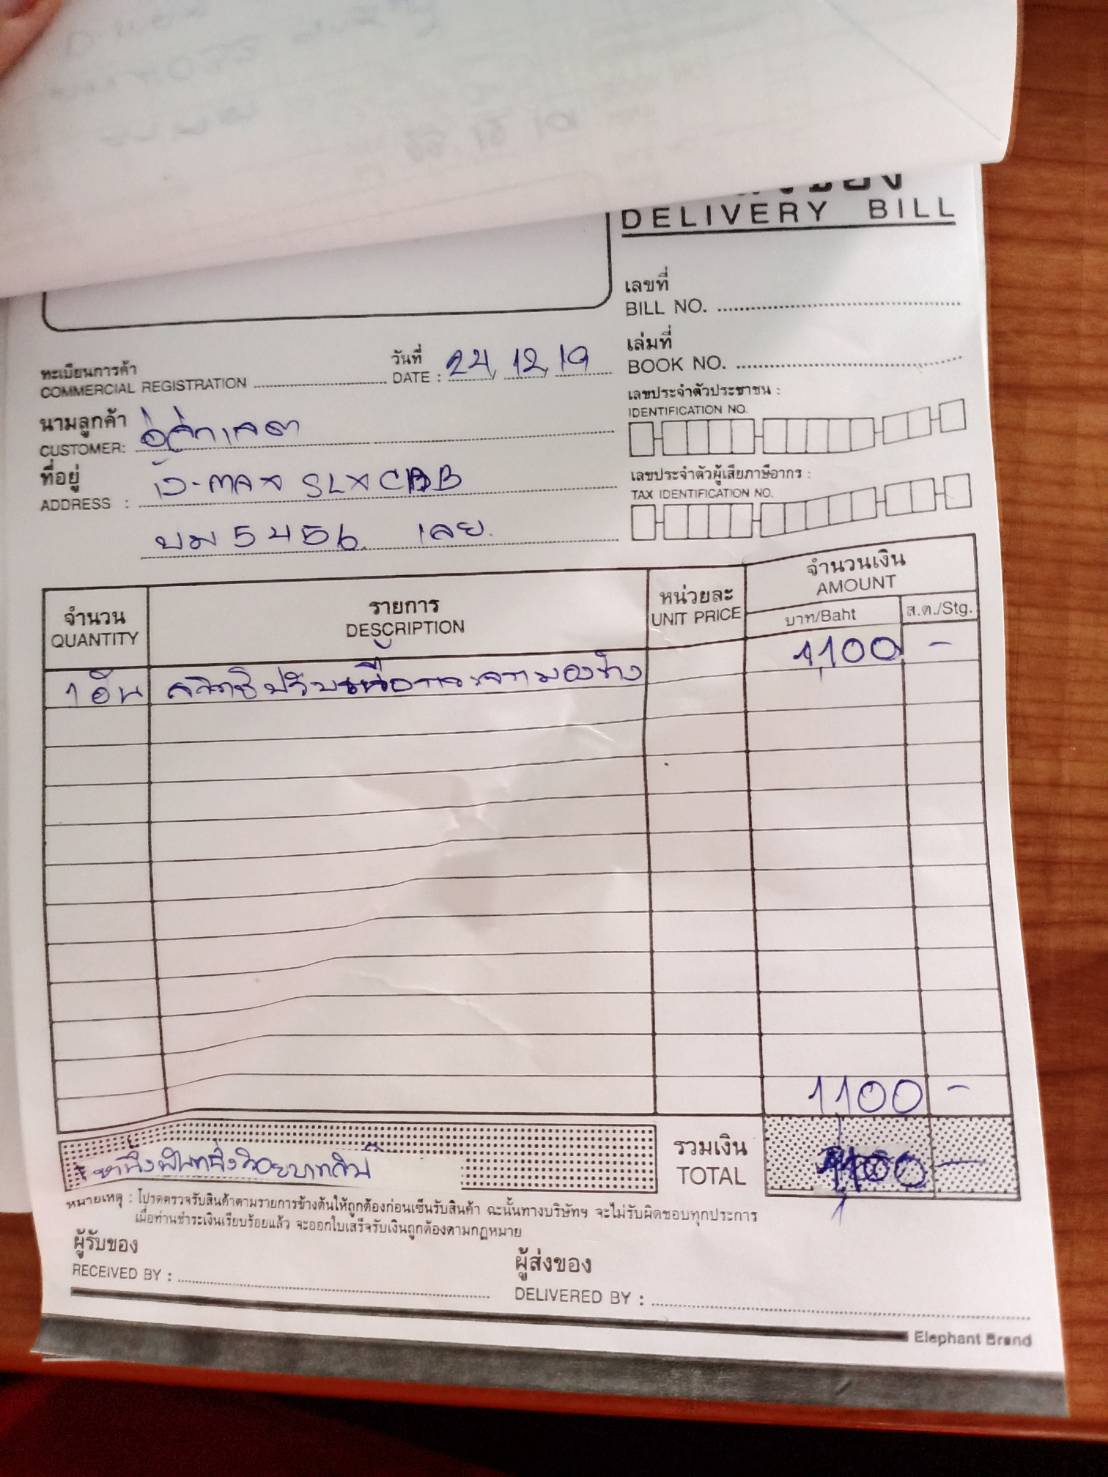 DELIVERY BILL
เลขที่
BILL NO.
เล่มที่
BOOK NO.
ทะเบียนการค้า
COMMERCIAL REGISTRATION
วันที่
DATE : 24, 12, 19
นามลูกค้า
CUSTOMER:
ที่อยู่
ADDRESS :
บม 5456 เลย.
เลขประจำตัวประชาชน :
IDENTIFICATION NO.
เลขประจำตัวผู้เสียภาษีอากร :
TAX IDENTIFICATION NO.
จำนวน
QUANTITY
รายการ
DESCRIPTION
หน่วยละ
UNIT PRICE
จำนวนเงิน
AMOUNT
บาท/Baht
ส.ต./Stg.
1 อัน
1,100 -
1,100 -
หนึ่งพันหนึ่งร้อยบาทถ้วน
รวมเงิน
TOTAL
1100 -
หมายเหตุ : โปรดตรวจรับสินค้าตามรายการข้างต้นให้ถูกต้องก่อนเซ็นรับสินค้า ฉะนั้นทางบริษัทฯ จะไม่รับผิดชอบทุกประการ
เมื่อท่านชำระเงินเรียบร้อยแล้ว จะออกใบเสร็จรับเงินถูกต้องตามกฎหมาย
ผู้รับของ
RECEIVED BY :
ผู้ส่งของ
DELIVERED BY :
Elephant Brand